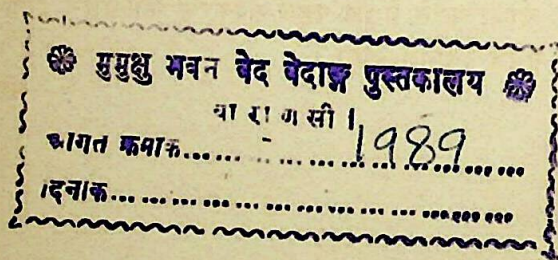 ❁ मुमुक्षु भवन वेद वेदाङ्ग पुस्तकालय ❁
वा रा ण सी ।
आगत क्रमाक......1989......
दिनाक......